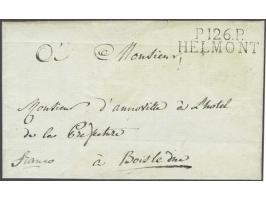 P.126.P.
HELMONT
À Monsieur,
Monsieur d'annoville à L'hotel
de la Préfecture
franco
à Bois le duc